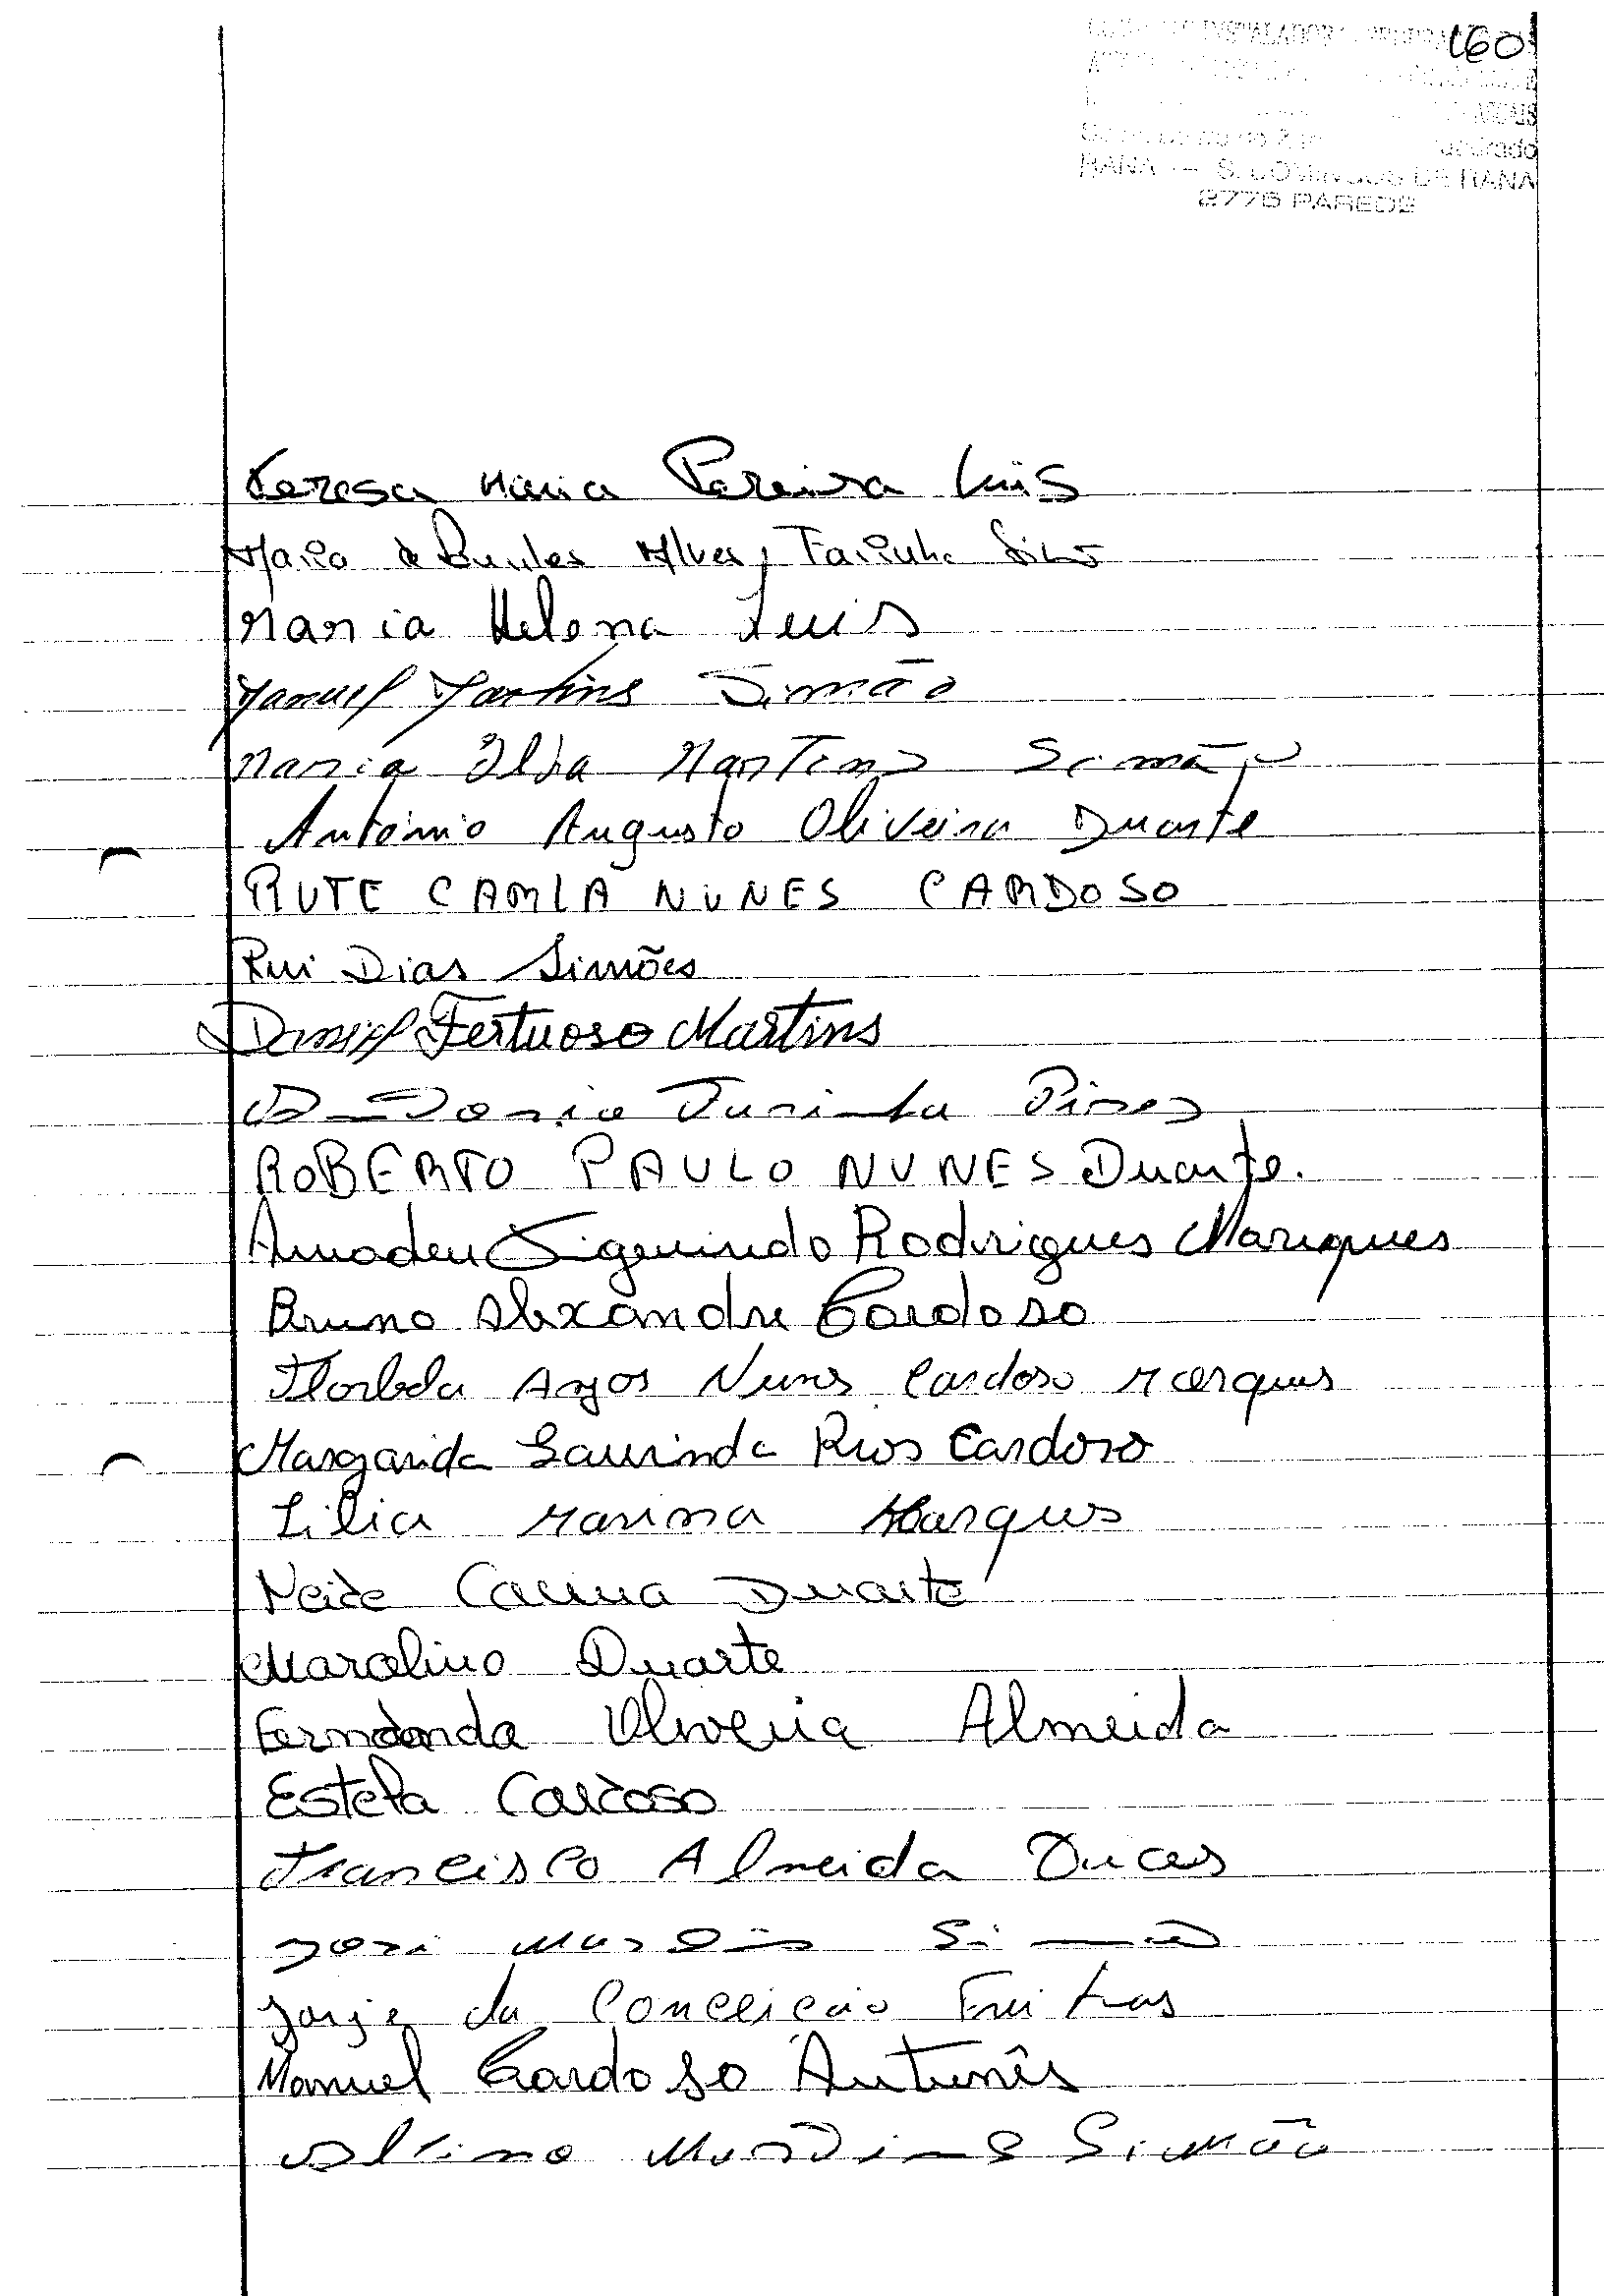 160
INSTALADORA
RANA — S. DOMINGOS DE RANA
2775 PAREDE
Teresa Maria Pereira Luis
Maria de Alves Farinha
Maria Helena Luis
Manuel Martins Simão
Maria Ilda Martins Simão
António Augusto Oliveira Duarte
RUTE CARLA NUNES CARDOSO
Rui Dias Simões
Daniel Fertuoso Martins
Farinha Pires
ROBERTO PAULO NUNES Duarte.
Amadeu Sigemundo Rodrigues Marques
Bruno Alexandre Cardoso
Florbela Anjos Nunes Cardoso Marques
Margarida Laurinda Rios Cardoso
Lilia Marina Marques
Neide Carina Duarte
Marcelino Duarte
Fernanda Oliveira Almeida
Estela Cardoso
Francisco Almeida Lucas
Simão
Jorge da Conceição Freitas
Manuel Cardoso Antunês
Martins Simão